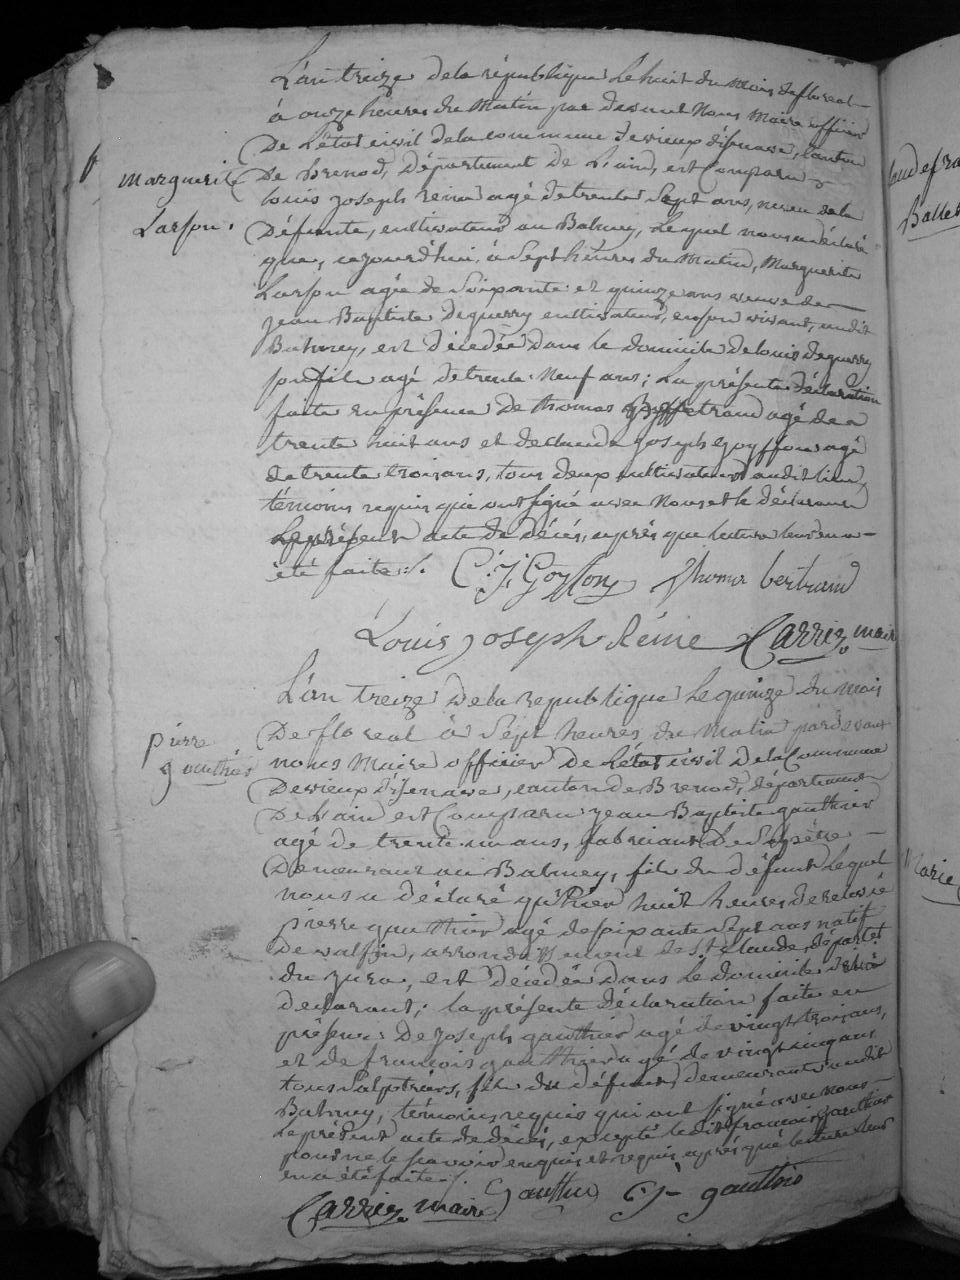 L'an treize de la république le huit du mois de floreal
à onze heures du matin par devant Nous Maire officier
De L'état civil de la commune de vieux d'isenave, canton
De Brenod, Département de L'ain, est Comparu
Marguerite
Larson.
louis joseph reine agé de trente sept ans, neveu de la
Défunte, cultivateur au Balmey, lequel nous a déclaré
que, cejourd'hui, à sept heures du matin, Marguerite
Larson agée de soixante et quinze ans veuve de
jean Baptiste deguerry cultivateur, en son vivant, audit
Balmey, est décédée Dans le domicile de louis deguerry
son fils agé de trente neuf ans; La présente déclaration
faite en présence De thomas Bertrand agé de
trente huit ans et de claude joseph goyffon agé
de trente trois ans, tous deux cultivateurs audit lieu,
témoins requis qui ont signé avec Nous et le déclarant
Le présent acte de décés, après que lecture leur en a
été faite ./.
C. J. Goyffon thomas bertrand
Louis joseph Réine Carriez maire
L'an treize De la republique le quinze du mois
De floreal à Sept heures du Matin pardevant
pierre
gauthier
nous Maire officier De L'état civil De la Commune
De vieux d'isenave, canton de Brenod, département
De L'ain est Comparu jean Baptiste gauthier
agé de trente un ans, fabricant De Salpêtre
Demeurant au Balmey, fils du défunt lequel
nous a déclaré qu'hier huit heures de relevée
pierre gauthier agé de soixante sept ans natif
De valfin, arrondissement de St Claude, départet
du jura, est décédé dans le domicile dudit
declarant; la présente déclaration faite en
présence De joseph gauthier agé de vingt trois ans,
et de francois gauthier agé de vingt cinq ans
tous Salpêtriers, fils du défunt, demeurants audit
Balmey, témoins requis qui ont signé avec nous
le présent acte de décés, excepté ledit francois gauthier
pour ne le scavoir enquis et requis après que lecture leur
en a été faite ./.
Carriez maire gauthier J gauthier